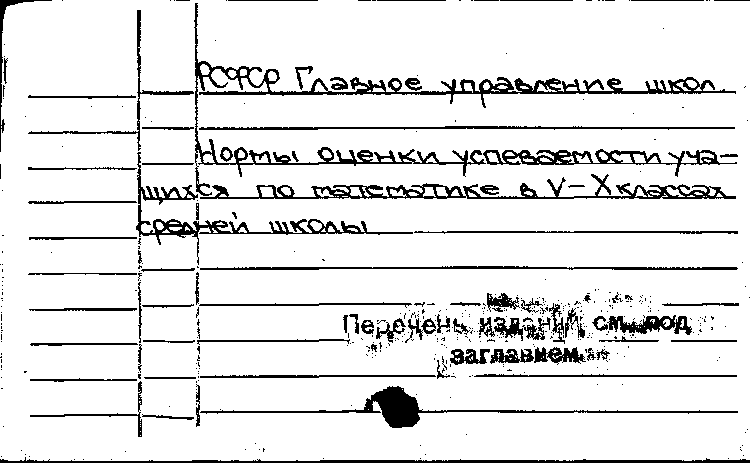 РСФСР Главное управление школ
Нормы оценки успеваемости уча-
щихся по математике в V-X классах
средней школы
Перечень изданий см. под
заглавием.